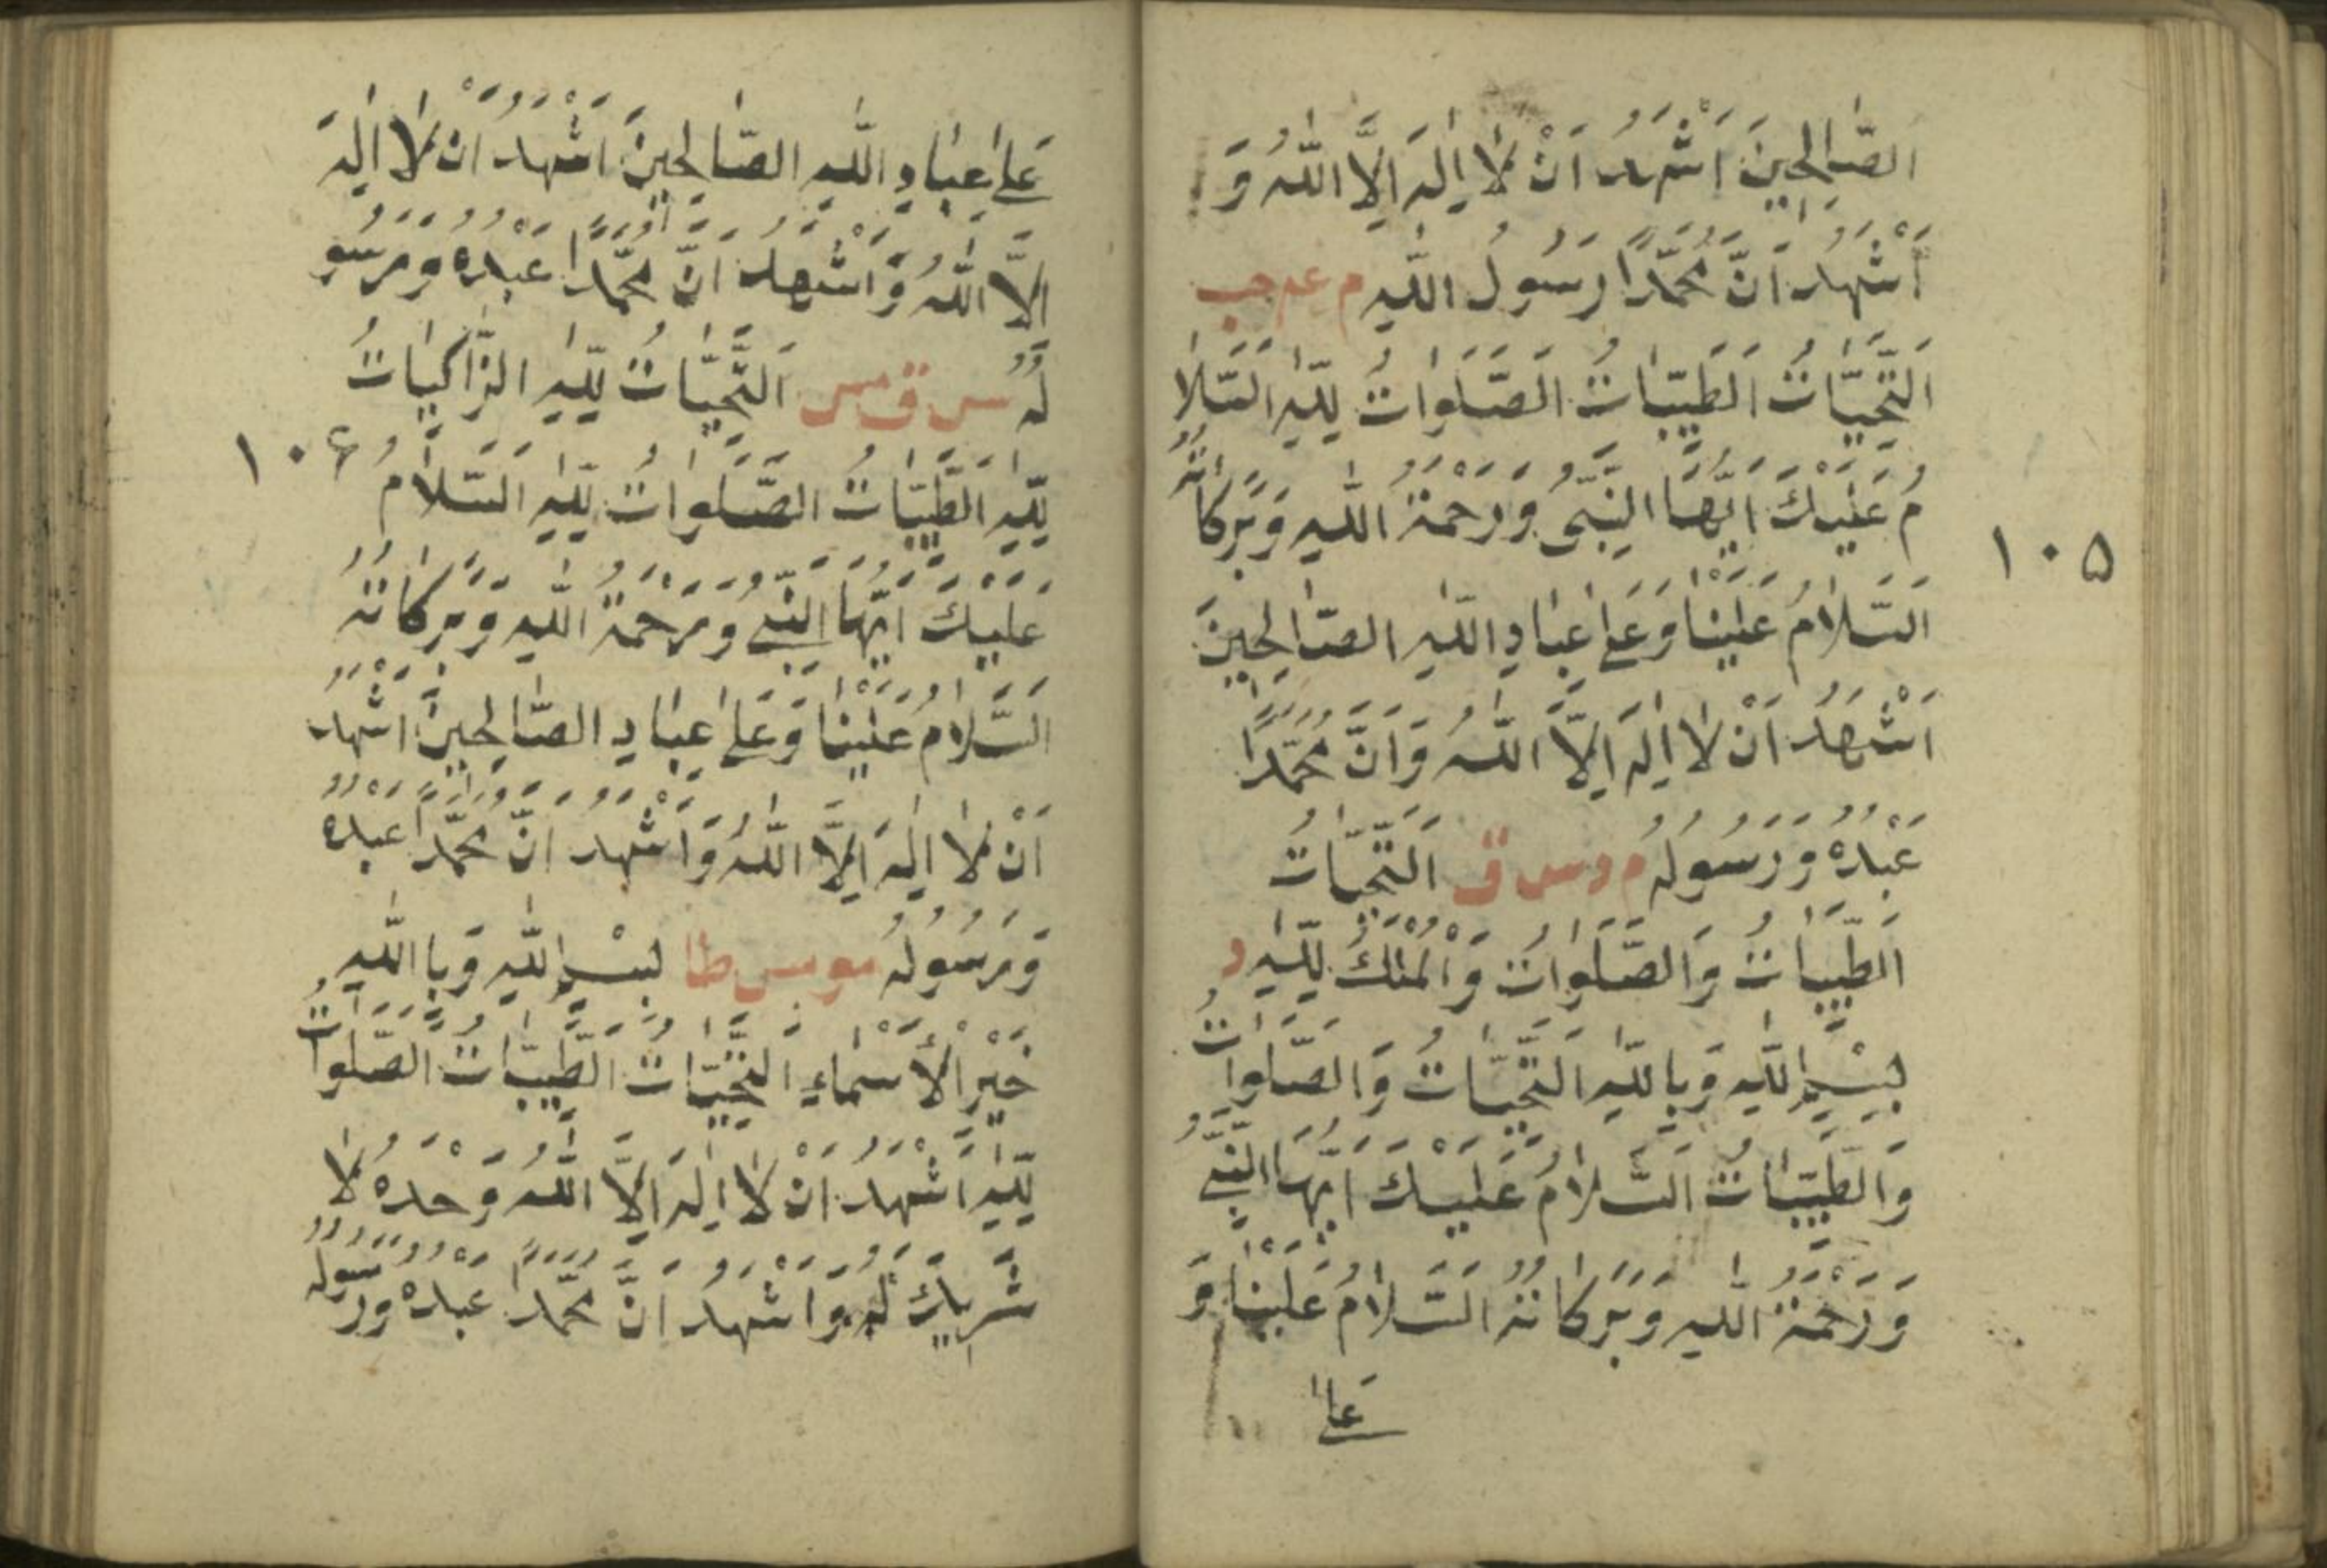 الصَّالِحِينَ اَشْهَدُ اَنْ لَا اِلٰهَ اِلَّا اللّٰهُ وَ
اَشْهَدُ اَنَّ مُحَمَّدًا رَسُولُ اللّٰهِ م عه حب
اَلتَّحِيَّاتُ اَلطَّيِّبَاتُ الصَّلَوَاتُ لِلّٰهِ اَلسَّلَا
مُ عَلَيْكَ اَيُّهَا النَّبِىُّ وَرَحْمَةُ اللّٰهِ وَبَرَكَاتُهُ
۱۰۵
اَلسَّلَامُ عَلَيْنَا وَعَلٰى عِبَادِ اللّٰهِ الصَّالِحِينَ
اَشْهَدُ اَنْ لَا اِلٰهَ اِلَّا اللّٰهُ وَاَنَّ مُحَمَّدًا
عَبْدُهُ وَرَسُولُهُ م د س ق اَلتَّحِيَّاتُ
اَلطَّيِّبَاتُ وَالصَّلَوَاتُ وَالْمُلْكُ لِلّٰهِ د
بِسْمِ اللّٰهِ وَبِاللّٰهِ اَلتَّحِيَّاتُ وَالصَّلَوَاتُ
وَالطَّيِّبَاتُ اَلسَّلَامُ عَلَيْكَ اَيُّهَا النَّبِىُّ
وَرَحْمَةُ اللّٰهِ وَبَرَكَاتُهُ اَلسَّلَامُ عَلَيْنَا وَ
عَلٰى
عَلٰى عِبَادِ اللّٰهِ الصَّالِحِينَ اَشْهَدُ اَنْ لَا اِلٰهَ
اِلَّا اللّٰهُ وَاَشْهَدُ اَنَّ مُحَمَّدًا عَبْدُهُ وَرَسُو
لُهُ س ق مس اَلتَّحِيَّاتُ لِلّٰهِ الزَّاكِيَاتُ
لِلّٰهِ اَلطَّيِّبَاتُ الصَّلَوَاتُ لِلّٰهِ اَلسَّلَامُ
۱۰۶
عَلَيْكَ اَيُّهَا النَّبِىُّ وَرَحْمَةُ اللّٰهِ وَبَرَكَاتُهُ
اَلسَّلَامُ عَلَيْنَا وَعَلٰى عِبَادِ الصَّالِحِينَ اَشْهَدُ
اَنْ لَا اِلٰهَ اِلَّا اللّٰهُ وَاَشْهَدُ اَنَّ مُحَمَّدًا عَبْدُهُ
وَرَسُولُهُ مو مس طا بِسْمِ اللّٰهِ وَبِاللّٰهِ
خَيْرِ الْاَسْمَاءِ اَلتَّحِيَّاتُ اَلطَّيِّبَاتُ الصَّلَوَاتُ
لِلّٰهِ اَشْهَدُ اَنْ لَا اِلٰهَ اِلَّا اللّٰهُ وَحْدَهُ لَا
شَرِيكَ لَهُ وَاَشْهَدُ اَنَّ مُحَمَّدًا عَبْدُهُ وَرَسُولُهُ